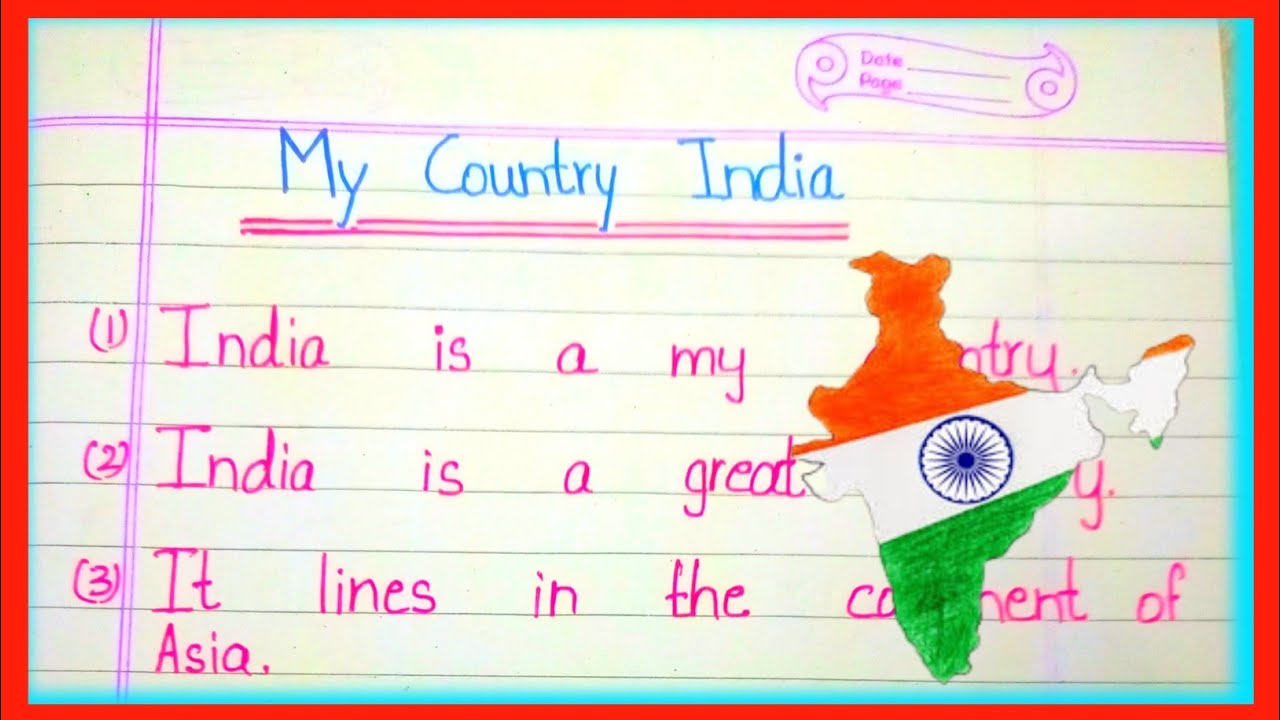 Date
Page
My Country India
(1) India is a my ntry.
(2) India is a great y.
(3) It lines in the co nent of
Asia.